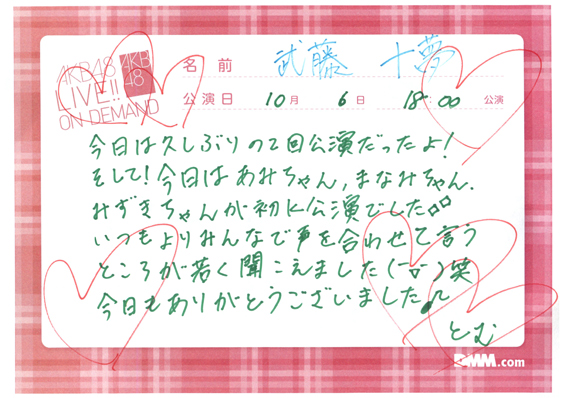 AKB48
LIVE!!
ON DEMAND
AKB
48
名前 武藤 十夢
公演日 10月 6日 18:00 公演
今日は久しぶりの2回公演だったよ!
そして!今日はあみちゃん,まなみちゃん.
みずきちゃんが初に公演でした
いつもよりみんなで声を合わせて言う
ところが若く聞こえました( )笑
今日もありがとうございました♪
とむ
DMM.com